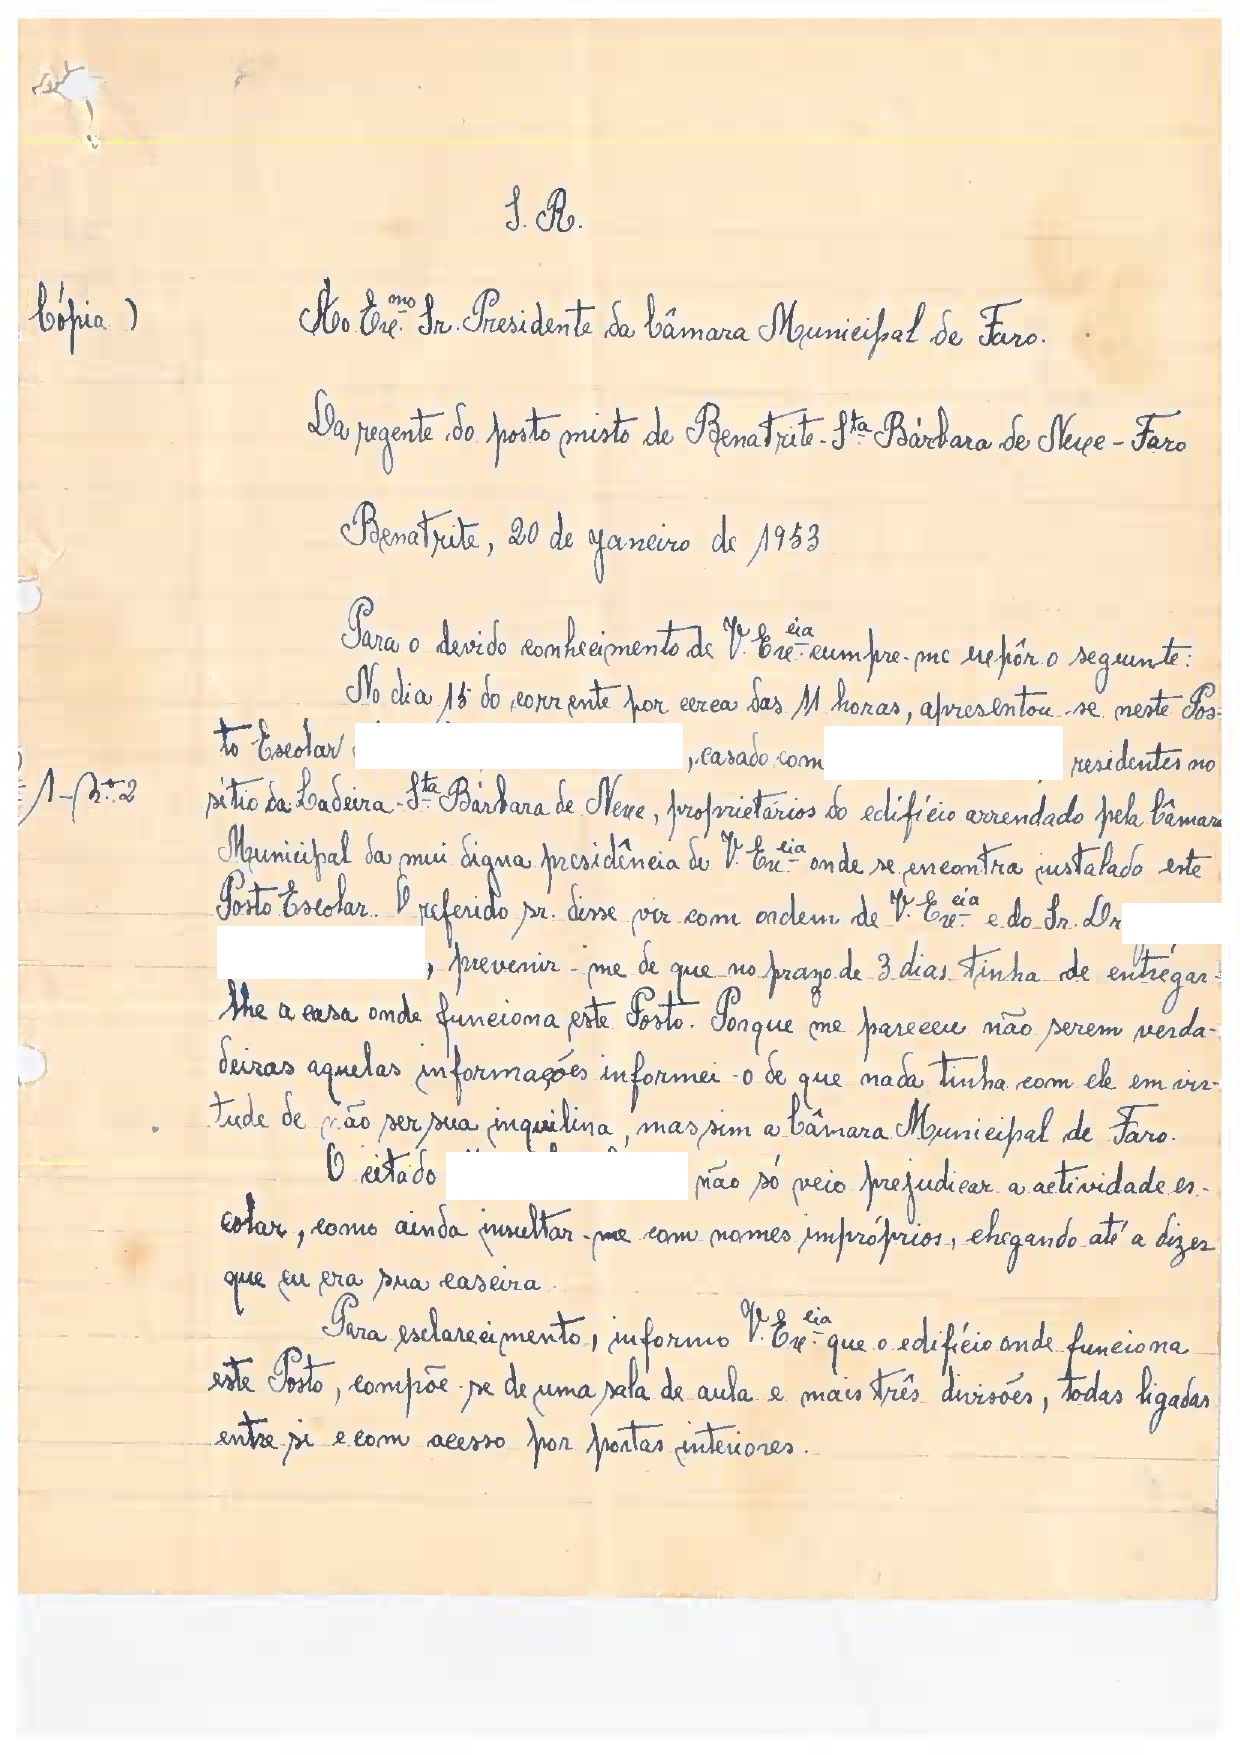 S. R.
Cópia )
Ao Exmo. Sr. Presidente da Câmara Municipal de Faro.
Da regente do posto misto de Benatrite - Sta Bárbara de Nexe - Faro
Benatrite, 20 de janeiro de 1953
Para o devido conhecimento de V. Excia. cumpre-me expôr o seguinte:
No dia 15 do corrente por cerca das 11 horas, apresentou-se neste Pos-
to Escolar , casado com residentes no
1-
sítio da Ladeira - Sta Bárbara de Nexe, proprietários do edifício arrendado pela Câmara
Municipal da mui digna presidência de V. Excia. onde se encontra instalado este
Posto Escolar. O referido sr. disse vir com ordem de V. Excia. e do Sr. Dr
, prevenir-me de que no prazo de 3 dias tinha de entregar-
lhe a casa onde funciona este Posto. Porque me pareceu não serem verda-
deiras aquelas informações informei-o de que nada tinha com ele em vir-
tude de não ser sua inquilina, mas sim a Câmara Municipal de Faro.
O citado não só veio prejudicar a actividade es-
colar, como ainda insultar-me com nomes impróprios, chegando até a dizer
que eu era sua caseira.
Para esclarecimento, informo V. Excia. que o edifício onde funciona
este Posto, compõe-se de uma sala de aula e mais três divisões, todas ligadas
entre si e com acesso por portas interiores.